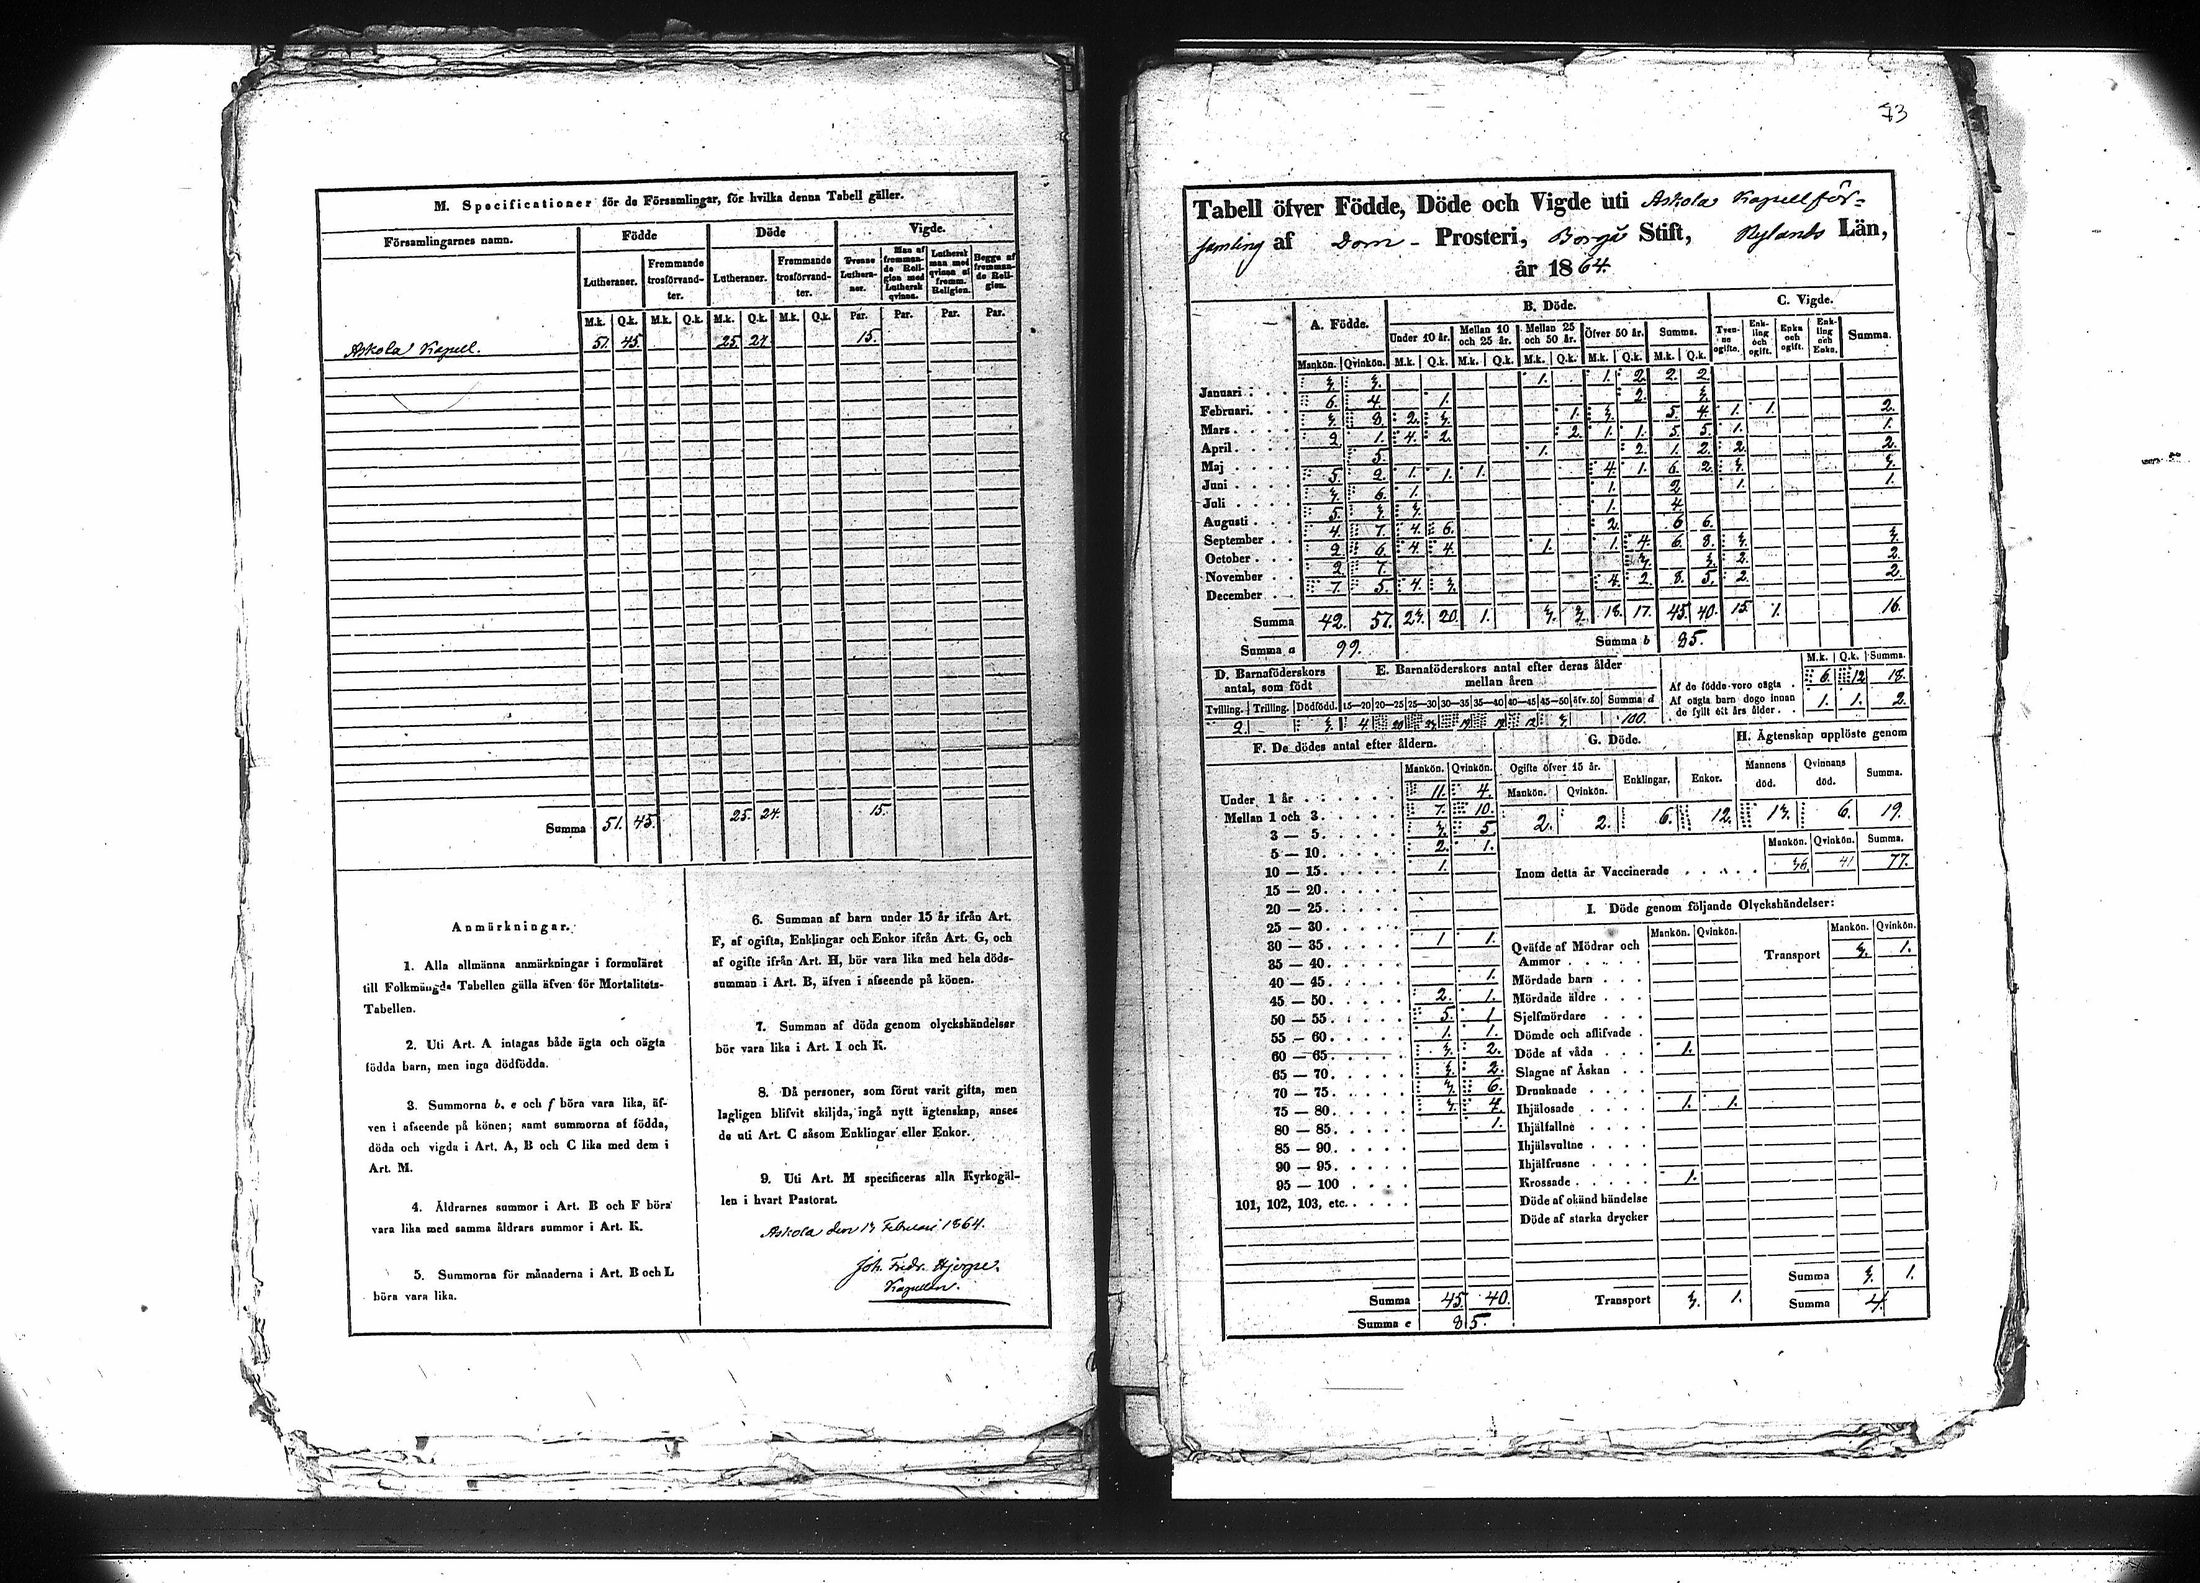 M. Specificationer för de Församlingar, för hvilka denna Tabell gäller.
Församlingarnes namn. Födde Döde Vigde.
Lutheraner. Fremmande trosförvandter. Lutheraner. Fremmande trosförvandter. Tvenne Lutheraner. Man af fremmande Religion med Luthersk qvinna. Luthersk man med qvinna af fremm. Religion. Begge af fremmande Religion.
M.k. Q.k. M.k. Q.k. M.k. Q.k. M.k. Q.k. Par. Par. Par. Par.
Askola Kapell. 51. 45. 25. 24. 15.
Summa 51. 45. 25. 24. 15.
Anmärkningar.
1. Alla allmänna anmärkningar i formuläret
till Folkmängds Tabellen gälla äfven för Mortalitets-
Tabellen.
2. Uti Art. A intagas både ägta och oägta
födda barn, men inga dödfödda.
3. Summorna b, e och f böra vara lika, äf-
ven i afseende på könen; samt summorna af födda,
döda och vigda i Art. A, B och C lika med dem i
Art. M.
4. Åldrarnes summor i Art. B och F böra
vara lika med samma åldrars summor i Art. K.
5. Summorna för månaderna i Art. B och L
böra vara lika.
6. Summan af barn under 15 år ifrån Art.
F, af ogifta, Enklingar och Enkor ifrån Art. G, och
af ogifte ifrån Art. H, bör vara lika med hela döds-
summan i Art. B, äfven i afseende på könen.
7. Summan af döda genom olyckshändelser
bör vara lika i Art. I och K.
8. Då personer, som förut varit gifta, men
lagligen blifvit skiljda, ingå nytt ägtenskap, anses
de uti Art. C såsom Enklingar eller Enkor.
9. Uti Art. M specificeras alla Kyrkogäl-
len i hvart Pastorat.
Askola den 17 Februari 1864.
Joh. Fredr. Hjerpe.
Kapellan.
73
Tabell öfver Födde, Döde och Vigde uti Askola Kapellför-
samling af Dom- Prosteri, Borgå Stift, Nylands Län,
år 1864.
A. Födde. B. Döde. C. Vigde.
Under 10 år. Mellan 10 och 25 år. Mellan 25 och 50 år. Öfver 50 år. Summa. Tvenne ogifte. Enkling och ogift. Enka och ogift. Enkling och Enka. Summa.
Mankön. Qvinkön. M.k. Q.k. M.k. Q.k. M.k. Q.k. M.k. Q.k. M.k. Q.k.
Januari 3. 3. 1. 1. 2. 2. 2.
Februari. 6. 4. 1. 2. 3.
Mars 3. 8. 2. 3. 1. 3. 5. 4. 1. 1. 2.
April. 2. 1. 4. 2. 2. 1. 1. 5. 5. 1. 1.
Maj 5. 1. 2. 1. 2. 2. 2.
Juni 5. 2. 1. 1. 1. 4. 1. 6. 2. 3. 3.
Juli 3. 6. 1. 1. 2. 1. 1.
Augusti 5. 3. 3. 1. 4.
September 4. 7. 4. 6. 2. 6 6.
October 2. 6. 4. 4. 1. 1. 4. 6. 8. 3. 3.
November 2. 7. 3. 3. 2. 2.
December 7. 5. 4. 3. 4. 2. 8. 5. 2. 2.
Summa 42. 57. 23. 20. 1. 3. 3. 18. 17. 45. 40. 15. 1. 16.
Summa a 99. Summa b 85.
D. Barnaföderskors antal, som födt
Tvilling. Trilling. Dödfödd.
2. 3.
E. Barnaföderskors antal efter deras ålder mellan åren
15—20 20—25 25—30 30—35 35—40 40—45 45—50 öfv. 50 Summa d
4 20 100.
M.k. Q.k. Summa.
Af de födde voro oägta 6. 12 18.
Af oägta barn dogo innan de fyllt ett års ålder 1. 1. 2.
F. De dödes antal efter åldern.
Mankön. Qvinkön.
Under 1 år 11. 4.
Mellan 1 och 3. 7. 10.
3 — 5. 3. 5.
5 — 10. 2. 1.
10 — 15. 1.
15 — 20.
20 — 25.
25 — 30.
30 — 35. 1 1.
35 — 40.
40 — 45. 1.
45 — 50. 2. 1.
50 — 55. 5. 1
55 — 60. 1. 1.
60 — 65. 3. 2.
65 — 70. 3. 2.
70 — 75. 3. 6.
75 — 80. 3. 4.
80 — 85. 1.
85 — 90.
90 — 95.
95 — 100
101, 102, 103, etc.
Summa 45. 40.
Summa e 85.
G. Döde.
Ogifte öfver 15 år. Enklingar. Enkor.
Mankön. Qvinkön.
2. 2. 6. 12.
H. Ägtenskap upplöste genom
Mannens död. Qvinnans död. Summa.
13. 6. 19.
Mankön. Qvinkön. Summa.
Inom detta år Vaccinerade 36. 41 77.
I. Döde genom följande Olyckshändelser:
Mankön. Qvinkön. Mankön. Qvinkön.
Qväfde af Mödrar och Ammor Transport 3. 1.
Mördade barn
Mördade äldre
Sjelfmördare
Dömde och aflifvade
Döde af våda 1.
Slagne af Åskan
Drunknade
Ihjälosade 1. 1.
Ihjälfallne
Ihjälsvultne
Ihjälfrusne
Krossade 1.
Döde af okänd händelse
Döde af starka drycker
Summa 3. 1.
Transport 3. 1. Summa 4.